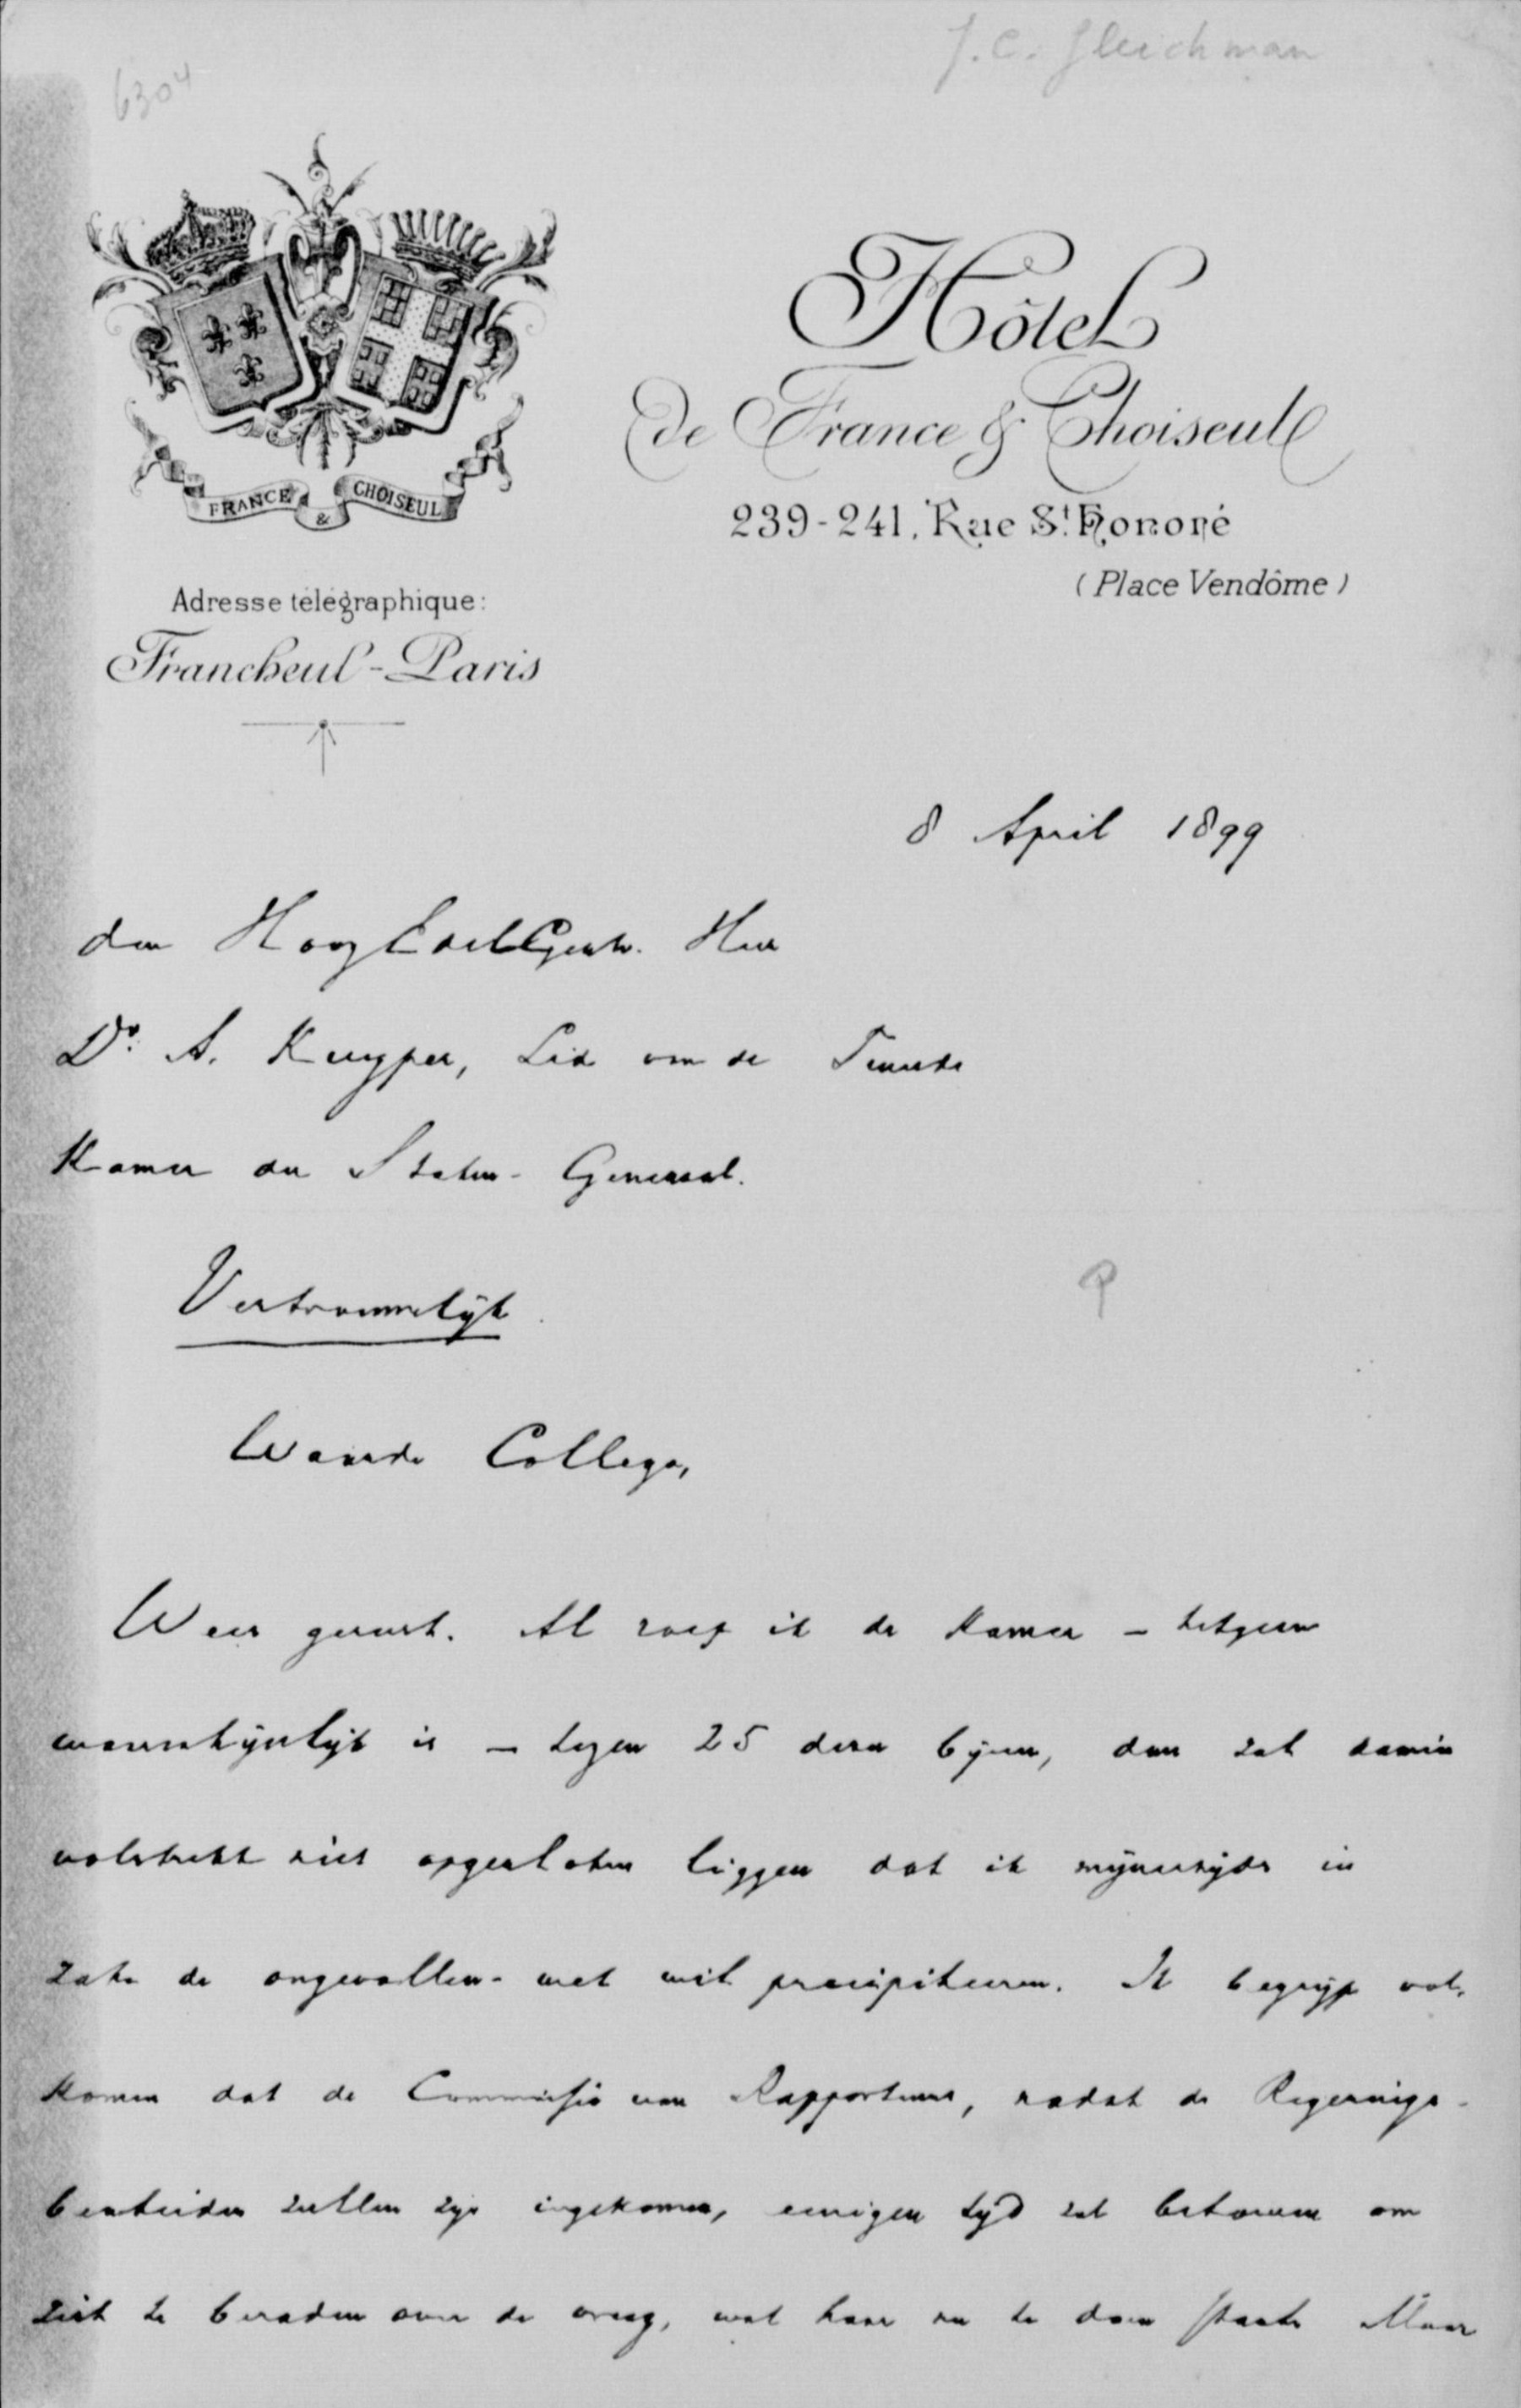 J. C. Gleichman
6304
Hôtel
de France & Choiseul
239-241, Rue St. Honoré
(Place Vendôme)
FRANCE & CHOISEUL
Adresse télégraphique:
Francheul-Paris
8 April 1899
den HoogEdelGestr. Heer
Dr. A. Kuyper, Lid van de Tweede
Kamer der Staten-Generaal.
Vertrouwelijk.
Waarde Collega,
Wees gerust. Al roep ik de Kamer – hetgeen
waarschijnlijk is – tegen 25 dezer bijeen, dan zal daarin
volstrekt niet opgesloten liggen dat ik mijnerzijds in
zake de ongevallen-wet wil precipiteeren. Ik begrijp vol-
komen dat de Commissie van Rapporteurs, nadat de Regeerings-
bescheiden zullen zijn ingekomen, eenigen tijd zal behoeven om
zich te beraden over de vraag, wat haar nu te doen staat. Maar